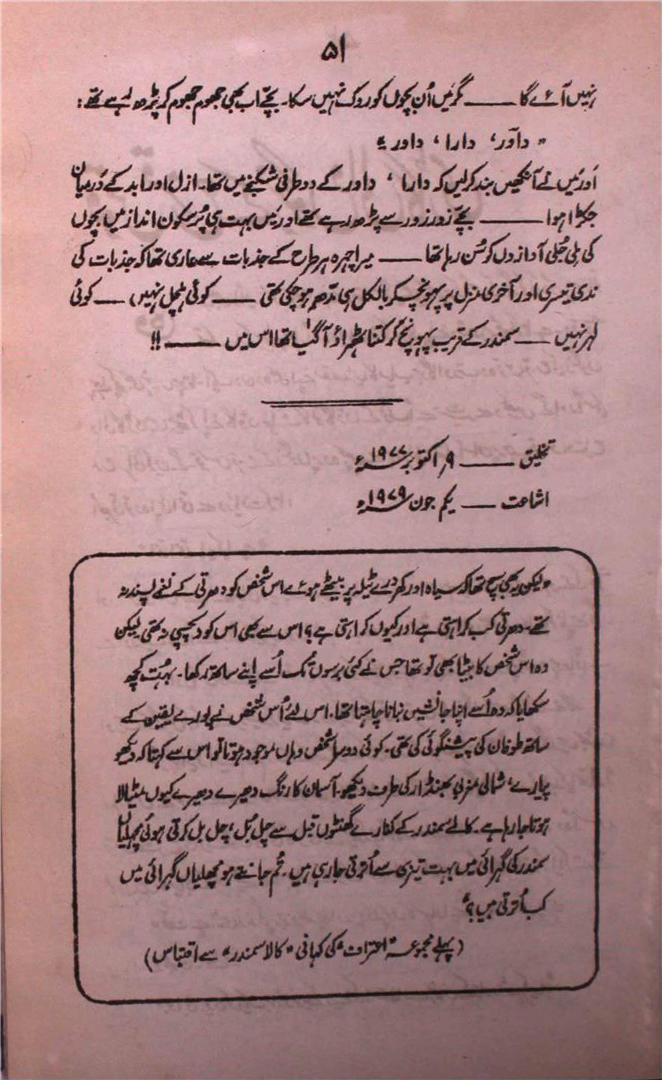 ۵۱
نہیں آئے گا ــــ مگر میں اُن بچوں کو روک نہیں سکا۔ بچے اب بھی جھوم جھوم کر پڑھ رہے تھے:
"داور، دارا، داور"
اور میں نے آنکھیں بند کرلیں کہ دارا، داور کے دوطرفی شکنجے میں تھا۔ ازل اور ابد کے درمیان
جکڑا ہوا ــــ بچے زور زور سے پڑھ رہے تھے اور میں بہت ہی پُرسکون انداز میں بچوں
کی ملی جُلی آوازوں کو سُن رہا تھا ــــ میرا چہرہ ہر طرح کے جذبات سے عاری تھا کہ جذبات کی
ندی تیسری اور آخری منزل پر پہونچکر بالکل ہی مدھم ہوچکی تھی ــــ کوئی ہلچل نہیں، ــــ کوئی
لہر نہیں ــــ سمندر کے قریب پہونچ کر کتنا ٹھہراؤ آگیا تھا اس میں ــــ !!
تخلیق ــــ ۹ اکتوبر ۱۹۷۷ء
اشاعت ــــ یکم جون ۱۹۷۹ء
"لیکن یہ بھی سچ تھا کہ سیاہ اور کھردرے ٹیلہ پر بیٹھے ہوئے اس شخص کو دھرتی کے نغمے پسند نہ
تھے۔ دھرتی کب کراہتی ہے اور کیوں کراہتی ہے؟ اس سے بھی اس کو دلچسپی نہ تھی لیکن
وہ اس شخص کا بیٹا بھی تو تھا جس نے کئی برسوں تک اُسے اپنے ساتھ رکھا۔ بہُت کچھ
سکھایا کہ وہ اُسے اپنا جانشیں بنانا چاہتا تھا۔ اس لئے اُس شخص نے پورے یقین کے
ساتھ طوفان کی پیشنگوئی کی تھی۔ کوئی دوسرا شخص وہاں موجود ہوتا تو اس سے کہتا کہ دیکھو
پیارے، شمالی مغربی بھنڈار کی طرف دیکھو۔ آسمان کا رنگ دھیرے دھیرے کیوں مٹیالا
ہوتا جارہا ہے۔ کالے سمندر کے کنارے گھنٹوں قبل سے چل بُل، چل بل کرتی ہوئی مچھلیاں
سمندر کی گہرائی میں بہت تیزی سے اُترتی جارہی ہیں۔ تُم جانتے ہو مچھلیاں گہرائی میں
کب اُترتی ہیں؟"
(پہلے مجموعہ "اعتراف" کی کہانی "کالا سمندر" سے اقتباس)